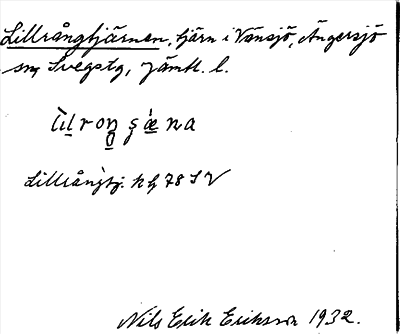 Lillrångtjärnen, tjärn i Vänsjö, Ängersjö
sn, Svegs tg, Jämtl. l.
Lillrångtj. k bl 78 S V
Nils Erik Eriksson 1932.